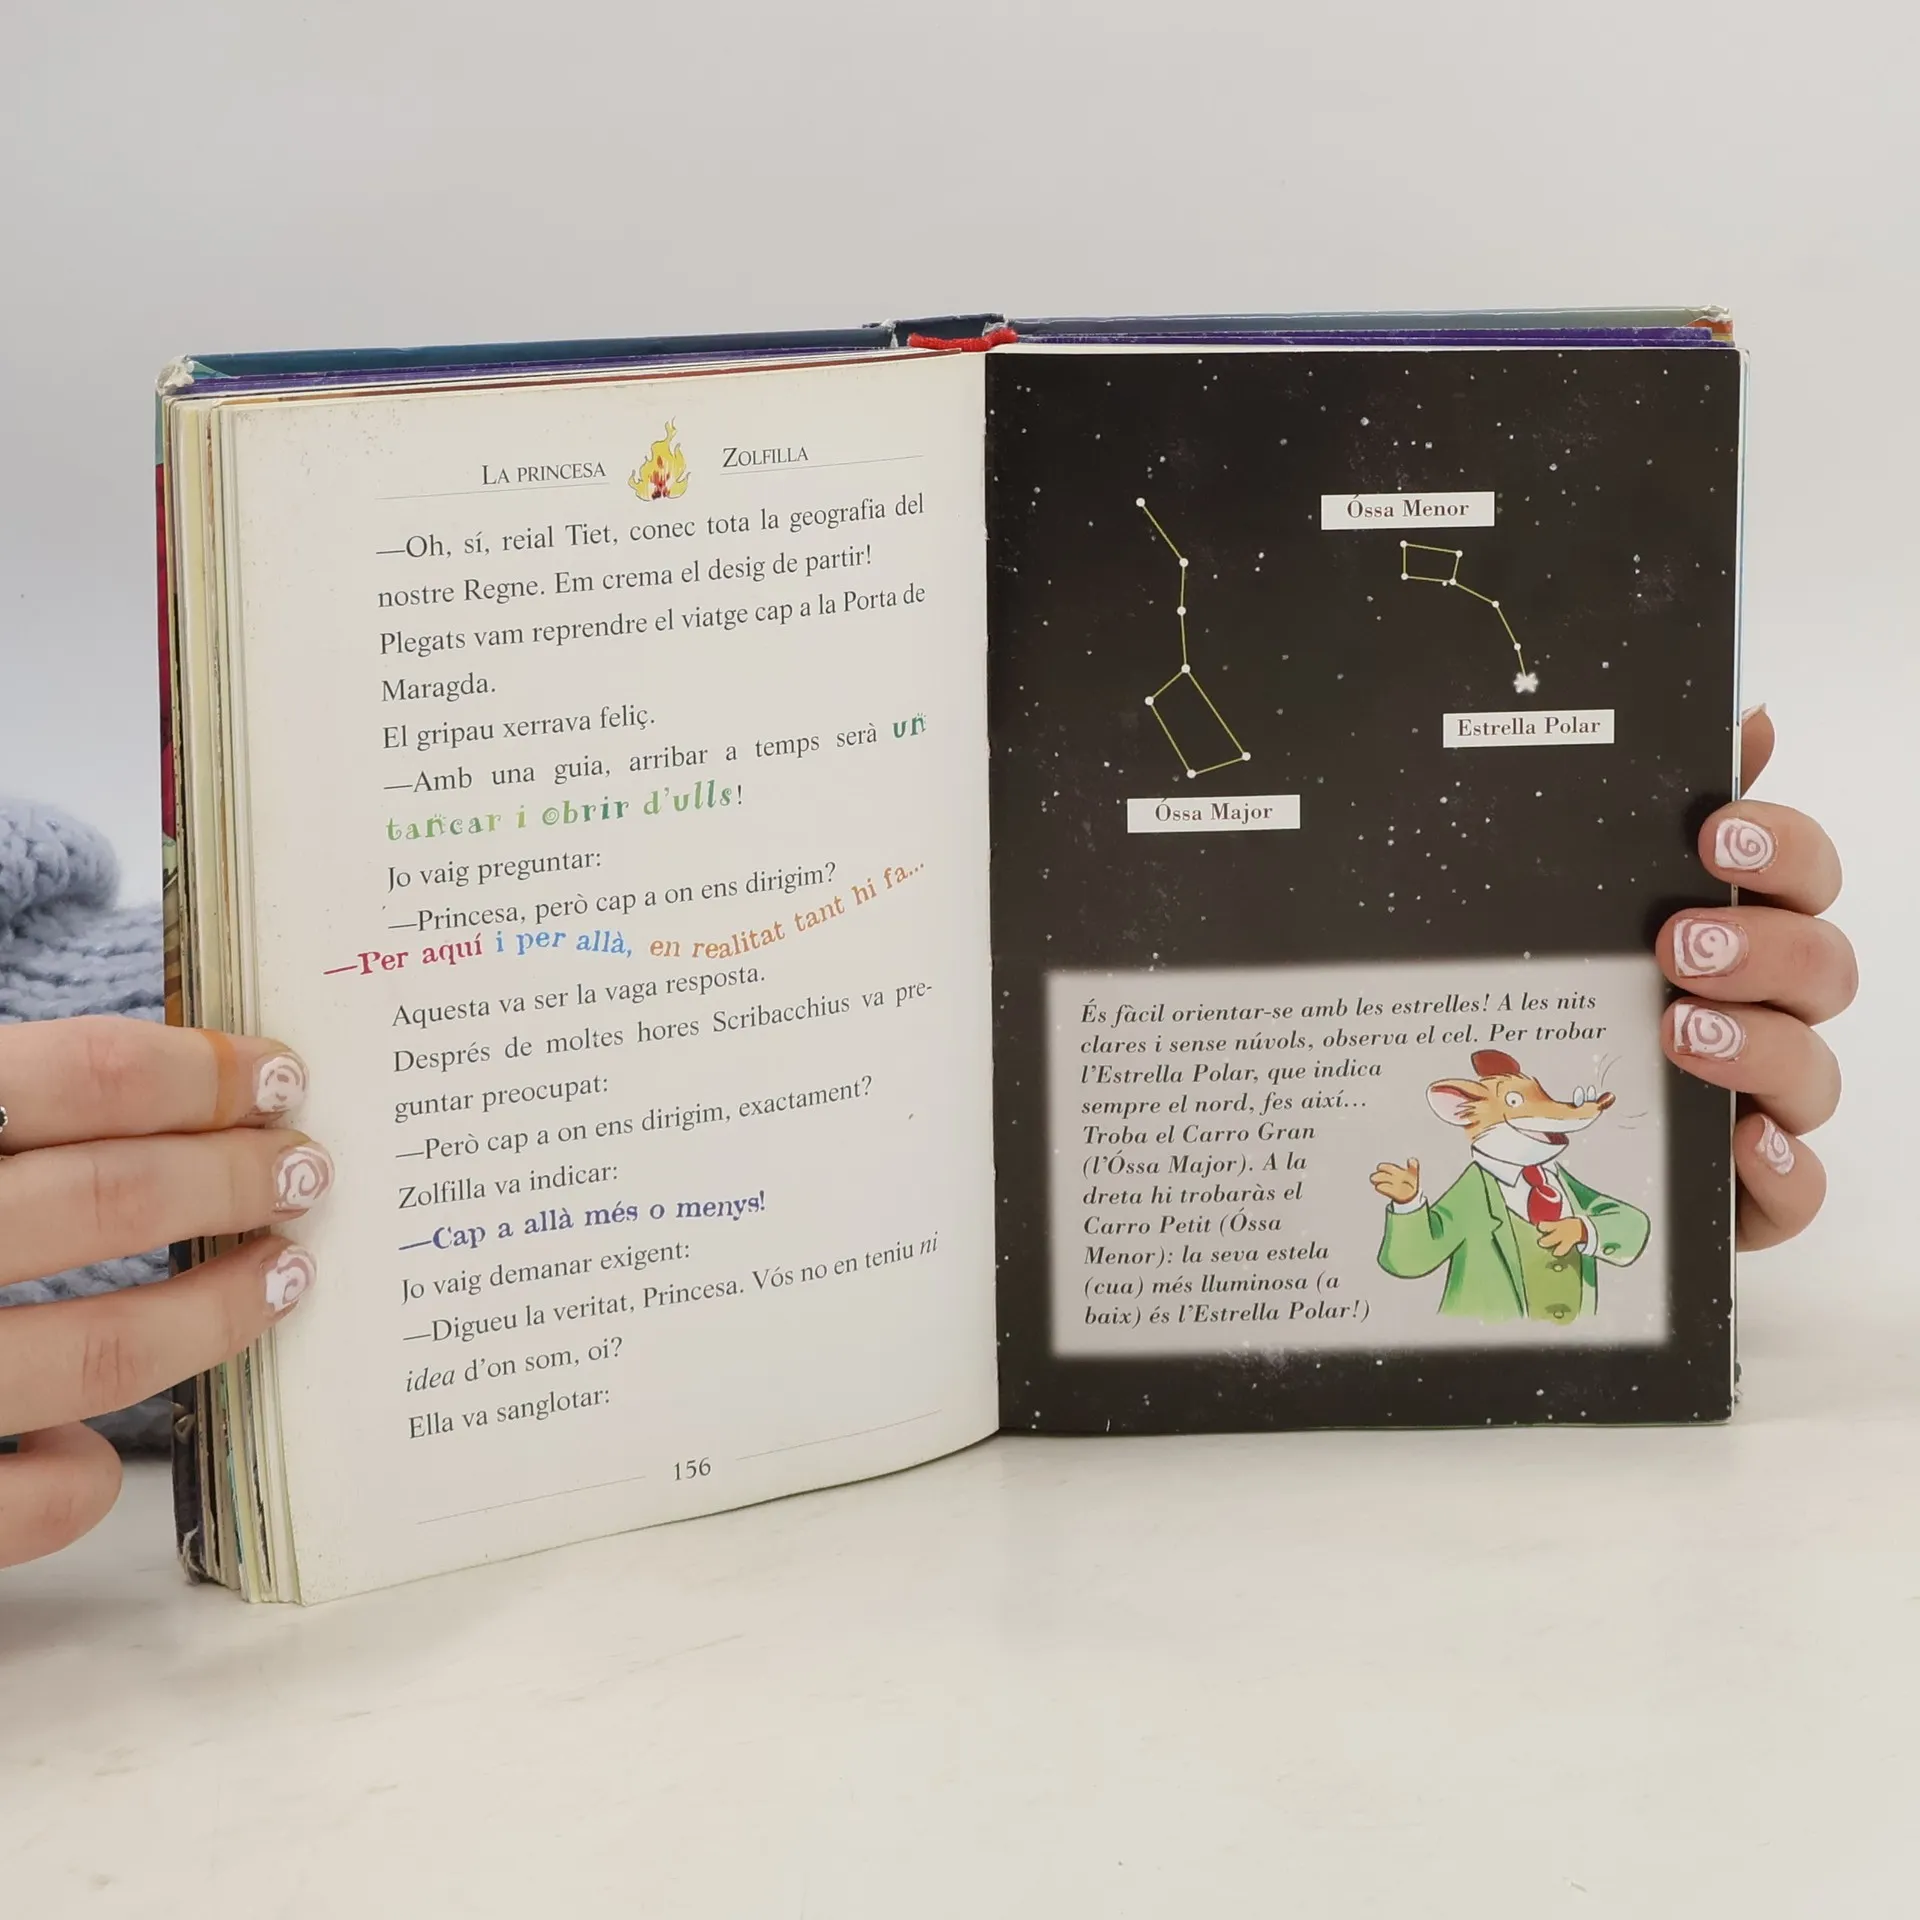 LA PRINCESA ZOLFILLA
—Oh, sí, reial Tiet, conec tota la geografia del
nostre Regne. Em crema el desig de partir!
Plegats vam reprendre el viatge cap a la Porta de
Maragda.
El gripau xerrava feliç.
—Amb una guia, arribar a temps serà un
tancar i obrir d'ulls!
Jo vaig preguntar:
—Princesa, però cap a on ens dirigim?
—Per aquí i per allà, en realitat tant hi fa...
Aquesta va ser la vaga resposta.
Després de moltes hores Scribacchius va pre-
guntar preocupat:
—Però cap a on ens dirigim, exactament?
Zolfilla va indicar:
—Cap a allà més o menys!
Jo vaig demanar exigent:
—Digueu la veritat, Princesa. Vós no en teniu ni
idea d'on som, oi?
Ella va sanglotar:
156
Óssa Menor
Estrella Polar
Óssa Major
És fàcil orientar-se amb les estrelles! A les nits
clares i sense núvols, observa el cel. Per trobar
l'Estrella Polar, que indica
sempre el nord, fes així...
Troba el Carro Gran
(l'Óssa Major). A la
dreta hi trobaràs el
Carro Petit (Óssa
Menor): la seva estela
(cua) més lluminosa (a
baix) és l'Estrella Polar!)